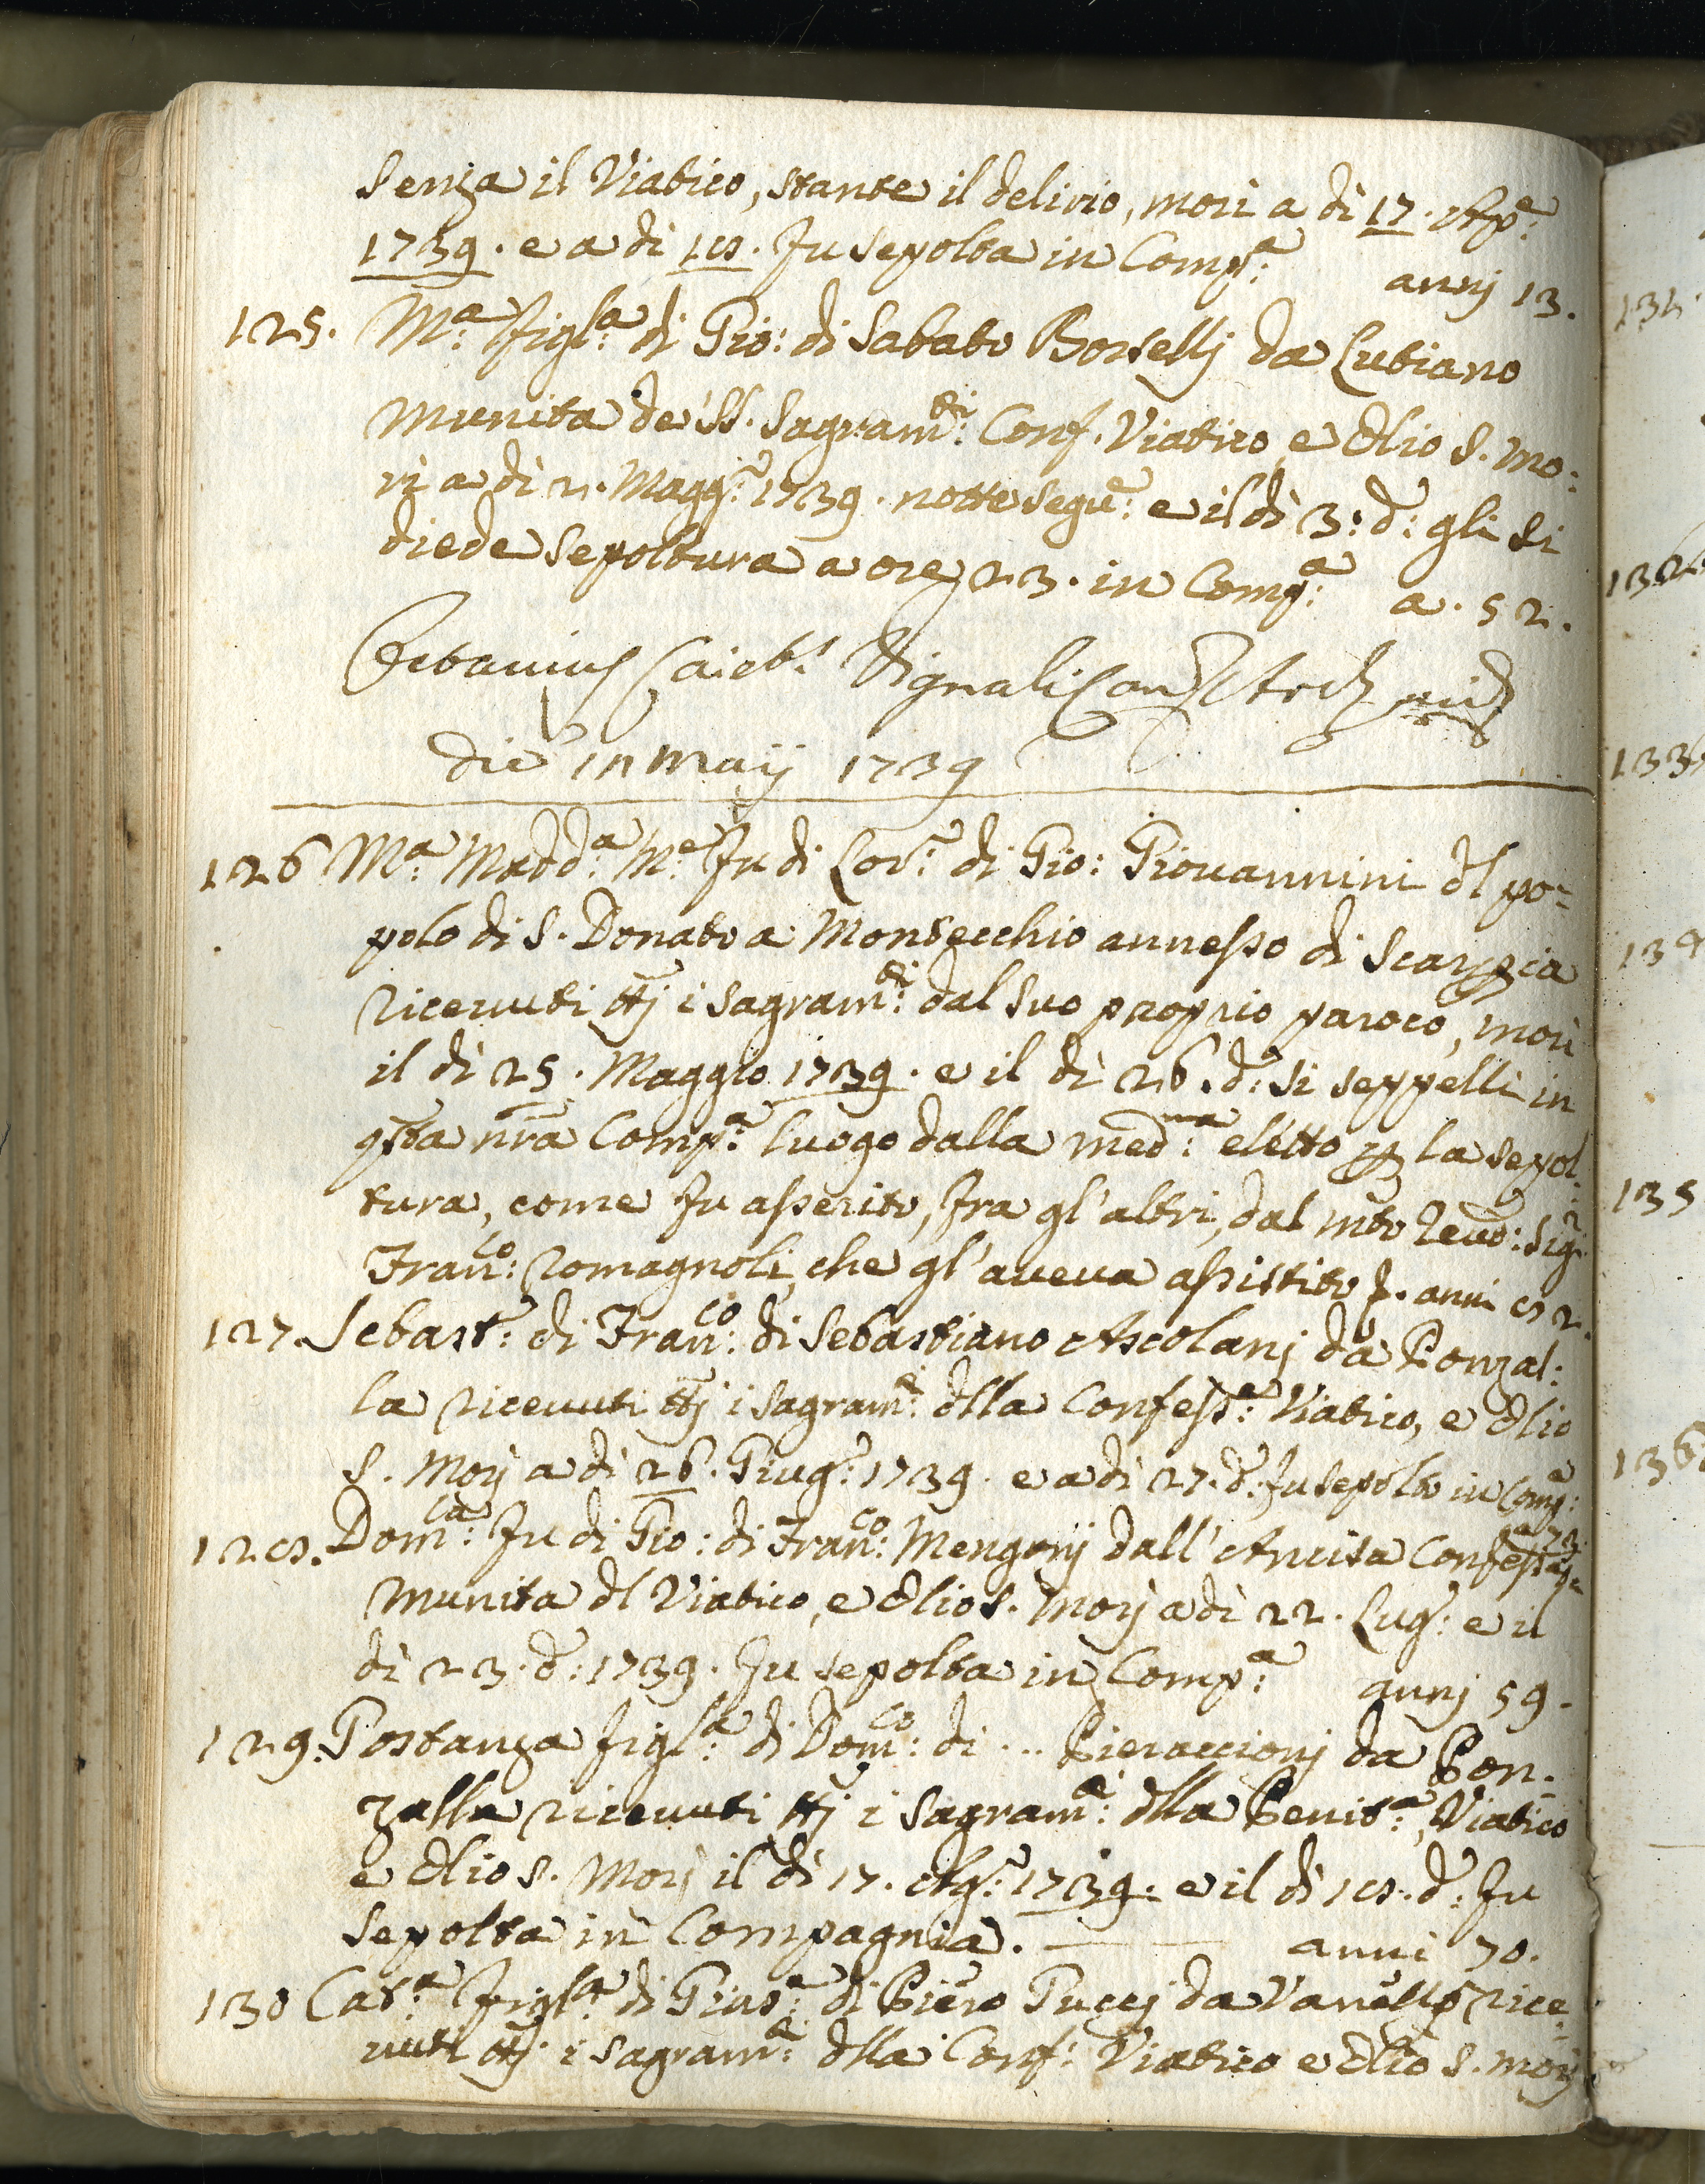 Senza il Viatico, stante il delirio, morì a dì 17. Ap:e
1739. e a dì 18. fu sepolta in Comp:a anni 13.
125. M:a figl:a di Gio: di Sabato Borselli da Lutiano
munita de' SS. Sagram:ti Conf. Viatico e Olio S. mo:
rì a dì 2. Magg:o 1739. notte segu:e e il dì 3: d:o gli si
diede sepoltura a ore 23. in Comp:a a. 52.
die 12 Maij 1739
126 M:a Madd:a M:e fu di Lor:o di Gio: Giovannini dl po=
polo di S. Donato a Montecchio annesso di Scarpia
ricevuti tti i Sagram:ti dal suo proprio paroco, morì
il dì 25. Maggio 1739. e il dì 26. d:o si seppellì in
qsta nra Comp:a luogo dalla med:ma eletto p la sepol:
tura, come fu asserito, fra gl'altri, dal mto Revd: Sig:r
Fran:co Romagnoli che gl'aveva assistito anni 82.
127. Sebast:o di Fran:co di Sebastiano Ascolani da Ronzal:
la ricevuti tti i Sagram:ti dlla Confess:e Viatico, e Olio
S. Morì a dì 26. Giug:o 1739. e a dì 27. d:o fu sepolto in Comp:a
128. Dom:ca fu di Gio: di Fran:co Mengonj dall'Ancisa Confessata
munita dl Viatico, e Olio S. Morì a dì 22. Lug:o e il
dì 23. d:o 1739. fu sepolta in Comp:a anni 59.
129. Gostanza figl:a di Dom:co di ... Pieraccionj da Ron:
zalla ricevuti tti i Sagram:ti dlla Penit:a, Viatico
e Olio S. Morì il dì 17. Ag:o 1739. e il dì 18. d:o fu
sepolta in Compagnia. anni 70.
130 Cat:a figl:a di Gius:e di Piero Puccj da rice
vuti tti i Sagram:ti dlla Conf: Viatico e Olio S. morì
134
132
133
134
135
136